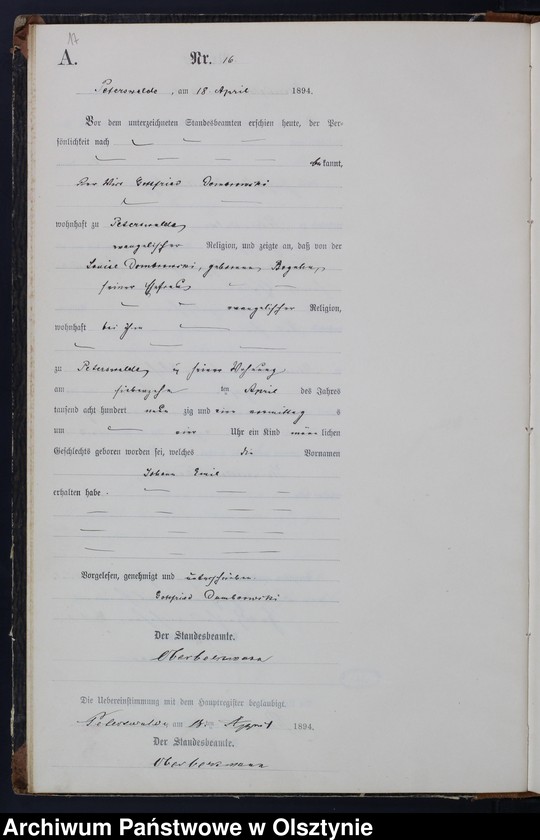 17
A. Nr. 16
Peterswalde, am 18 April 1894.
Vor dem unterzeichneten Standesbeamten erschien heute, der Per-
sönlichkeit nach
bekannt,
Der Wirt Gottfried Dombrowski
wohnhaft zu Peterswalde
evangelischer Religion, und zeigte an, daß von der
Louise Dombrowski, geborenen
seiner Ehefrau
evangelischer Religion,
wohnhaft bei ihm
zu Peterswalde in seiner Wohnung
am siebenzehn ten April des Jahres
tausend acht hundert neun zig und vier vormittag s
um vier Uhr ein Kind männlichen
Geschlechts geboren worden sei, welches die Vornamen
Johann Emil
erhalten habe.
Vorgelesen, genehmigt und unterschrieben
Gottfried Dombrowski
Der Standesbeamte.
Die Uebereinstimmung mit dem Hauptregister beglaubigt.
Peterswalde, am 18ten April 1894.
Der Standesbeamte.
Archiwum Państwowe w Olsztynie